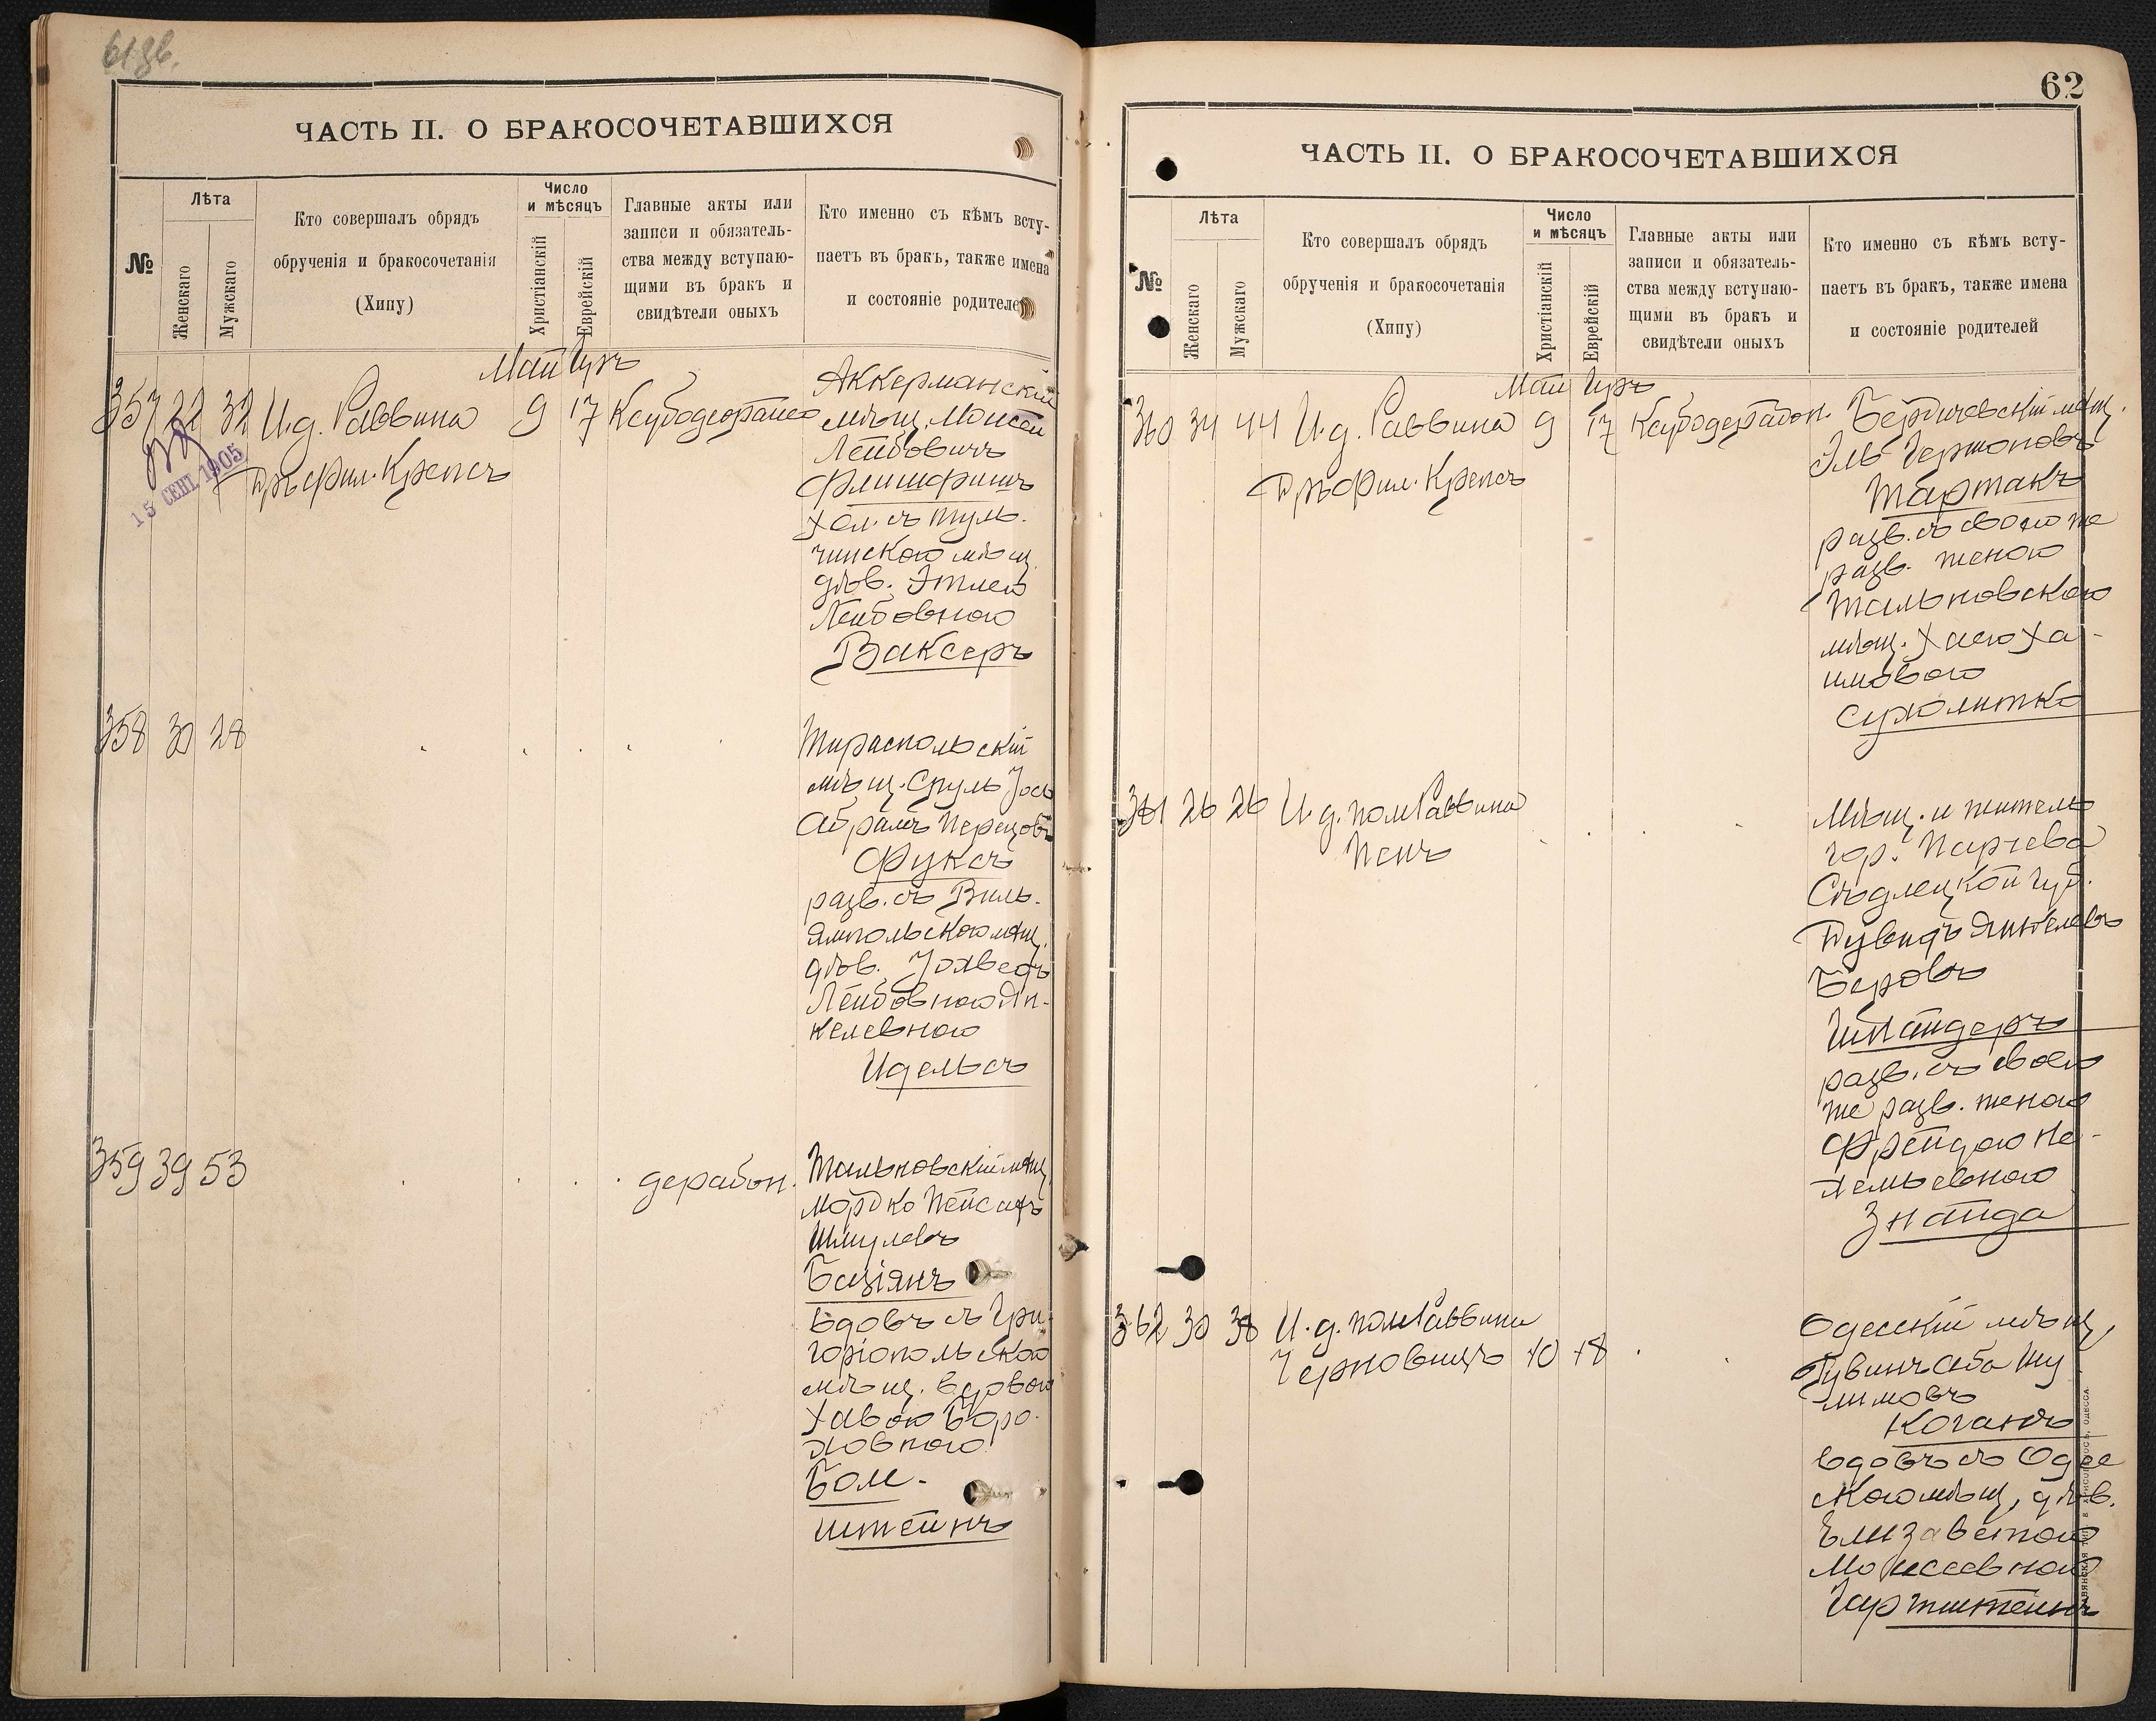 61 зв.
ЧАСТЬ II. О БРАКОСОЧЕТАВШИХСЯ
№
Лѣта
Женскаго
Мужскаго
Кто совершалъ обрядъ
обрученія и бракосочетанія
(Хипу)
Число
и мѣсяцъ
Христіанскій
Еврейскій
Главные акты или
записи и обязатель-
ства между вступаю-
щими въ бракъ и
свидѣтели оныхъ
Кто именно съ кѣмъ всту-
паетъ въ бракъ, также имена
и состояніе родителей
Май Іуръ
357 22 32 И.д. Раввина 9 17
Д-ръ фил. Крепсъ
15 СЕНТ. 1905
Аккерманскій
мѣщ. Моисей
Лейбовичъ
Флишфишъ
хол. съ Туль-
чинскою мѣщ.
дѣв. Этлею
Лейбовною
Ваксеръ
358 30 28
Тираспольскій
мѣщ. Сруль Іось
Абрамъ Перецовъ
Фуксъ
разв. съ Виль-
ямпольскою мѣщ.
дѣв. Іохведъ
Лейбовною Ян-
келевною
Идельсъ
359 39 53 дерабон.
Тальновскій мѣщ.
Мордко Пейсахъ
Шмулевъ
Базіянъ
вдовъ съ Гри-
горіопольскою
мѣщ. вдовою
Хавою Боро-
ховною
Бом-
штейнъ
62
ЧАСТЬ II. О БРАКОСОЧЕТАВШИХСЯ
№
Лѣта
Женскаго
Мужскаго
Кто совершалъ обрядъ
обрученія и бракосочетанія
(Хипу)
Число
и мѣсяцъ
Христіанскій
Еврейскій
Главные акты или
записи и обязатель-
ства между вступаю-
щими въ бракъ и
свидѣтели оныхъ
Кто именно съ кѣмъ всту-
паетъ въ бракъ, также имена
и состояніе родителей
Май Іуръ
360 34 44 И.д. Раввина 9 17 Ксубодерабон.
Д-ръ Фил. Крепсъ
Бердичевскій мѣщ.
Эль Гершоновъ
Тартакъ
разв. съ своею же
разв. женою
Тальновскою
мѣщ. Хаею Ха-
имовою
Сухолитко
361 26 26 И.д. пом Раввина
Пенъ
Мѣщ. и житель
гор. Парчева
Сѣдлецкой губ.
Дувидъ Янкелевъ
Беровъ
Шнайдеръ
разв. съ своею
же разв. женою
Фрейдою Не-
хемьевною
Знайда
362 30 38 И.д. пом Раввина
Черновицъ 10 18
Одесскій мѣщ.
Рувинъ Аба Шу
лимовъ
Коганъ
вдовъ съ Одес
скою мѣщ. дѣв.
Елизаветою
Моисеевною
Гартштейнъ